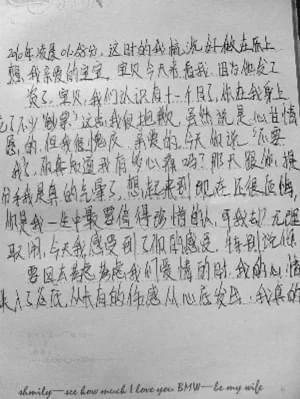 2010年凌晨01:58分,这时的我躺说好做在床上
想,我亲爱的宝宝,宝贝今天来看我,因为他发了
发了,宝贝,我们认识有十一个月了,你在我身上
花了不少"创累"这点我很抱歉,虽然说是心甘情
愿的,但我很愧疚,亲爱的,今天你说"不要
我了,你真知道我有多心痛吗?那天跟你提
分手我是真的气晕了,想起来到现在还很后悔,
你是我一生中最要值得珍惜的人,可我却?无理
取闹,今天我感受到了你的感受,特别说你
要回去考虑考虑我们爱情的时,我的心情
跌入了谷底,从有的伤感从心底发出,我真的
shmily—see how much I love you BMW—be my wife